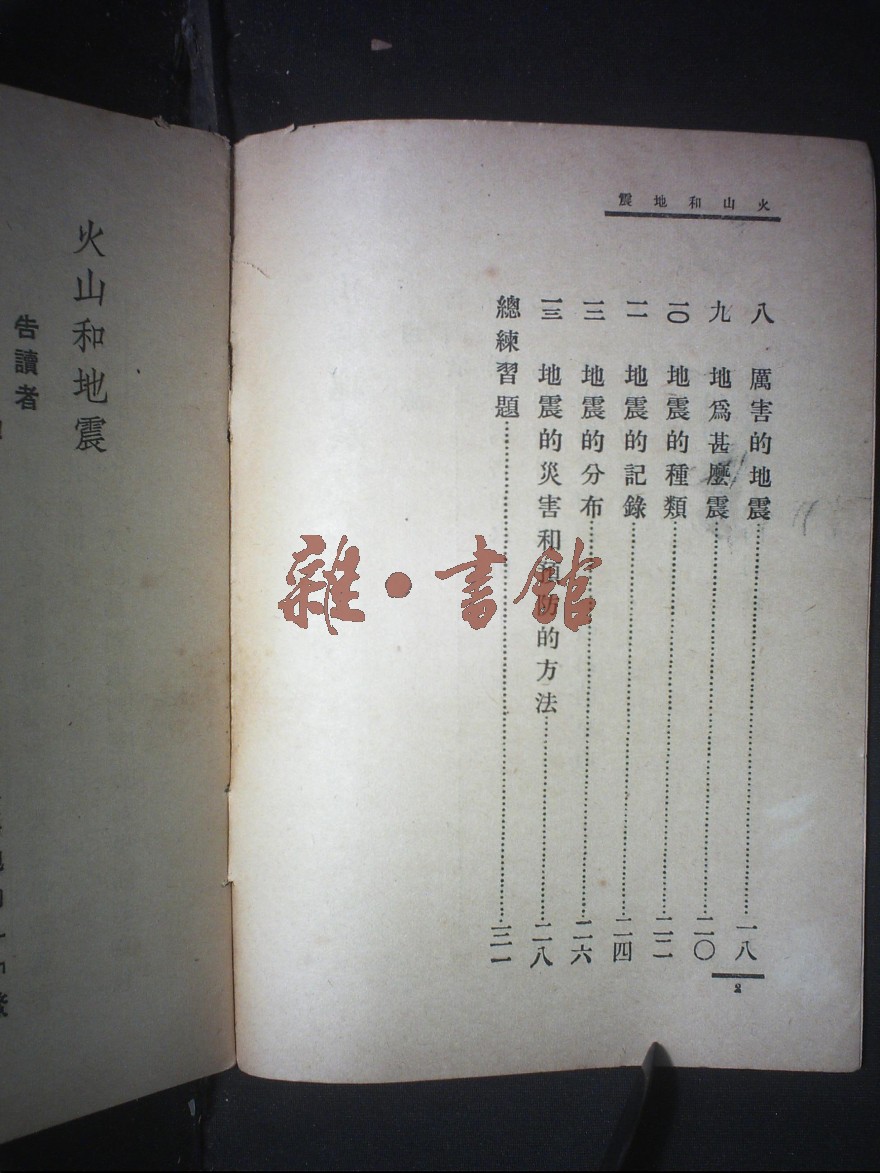 火山和地震
八　厲害的地震……一八
九　地爲甚麼震……二〇
一〇　地震的種類……二二
一一　地震的記錄……二四
一二　地震的分布……二六
一三　地震的災害和預防的方法……二八
總練習題……三一
2
火山和地震
告讀者
雜·書館